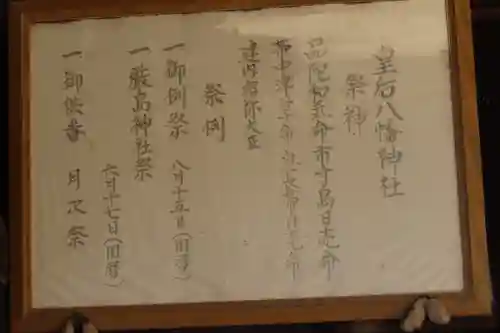 皇后八幡神社
祭神
品陀和気命 市寸島日売命
帯中津日子命
建内宿祢大臣
祭例
一 御例祭 八月十五日(旧暦)
一 厳島神社祭
六月十七日(旧暦)
一 御供番 月次祭